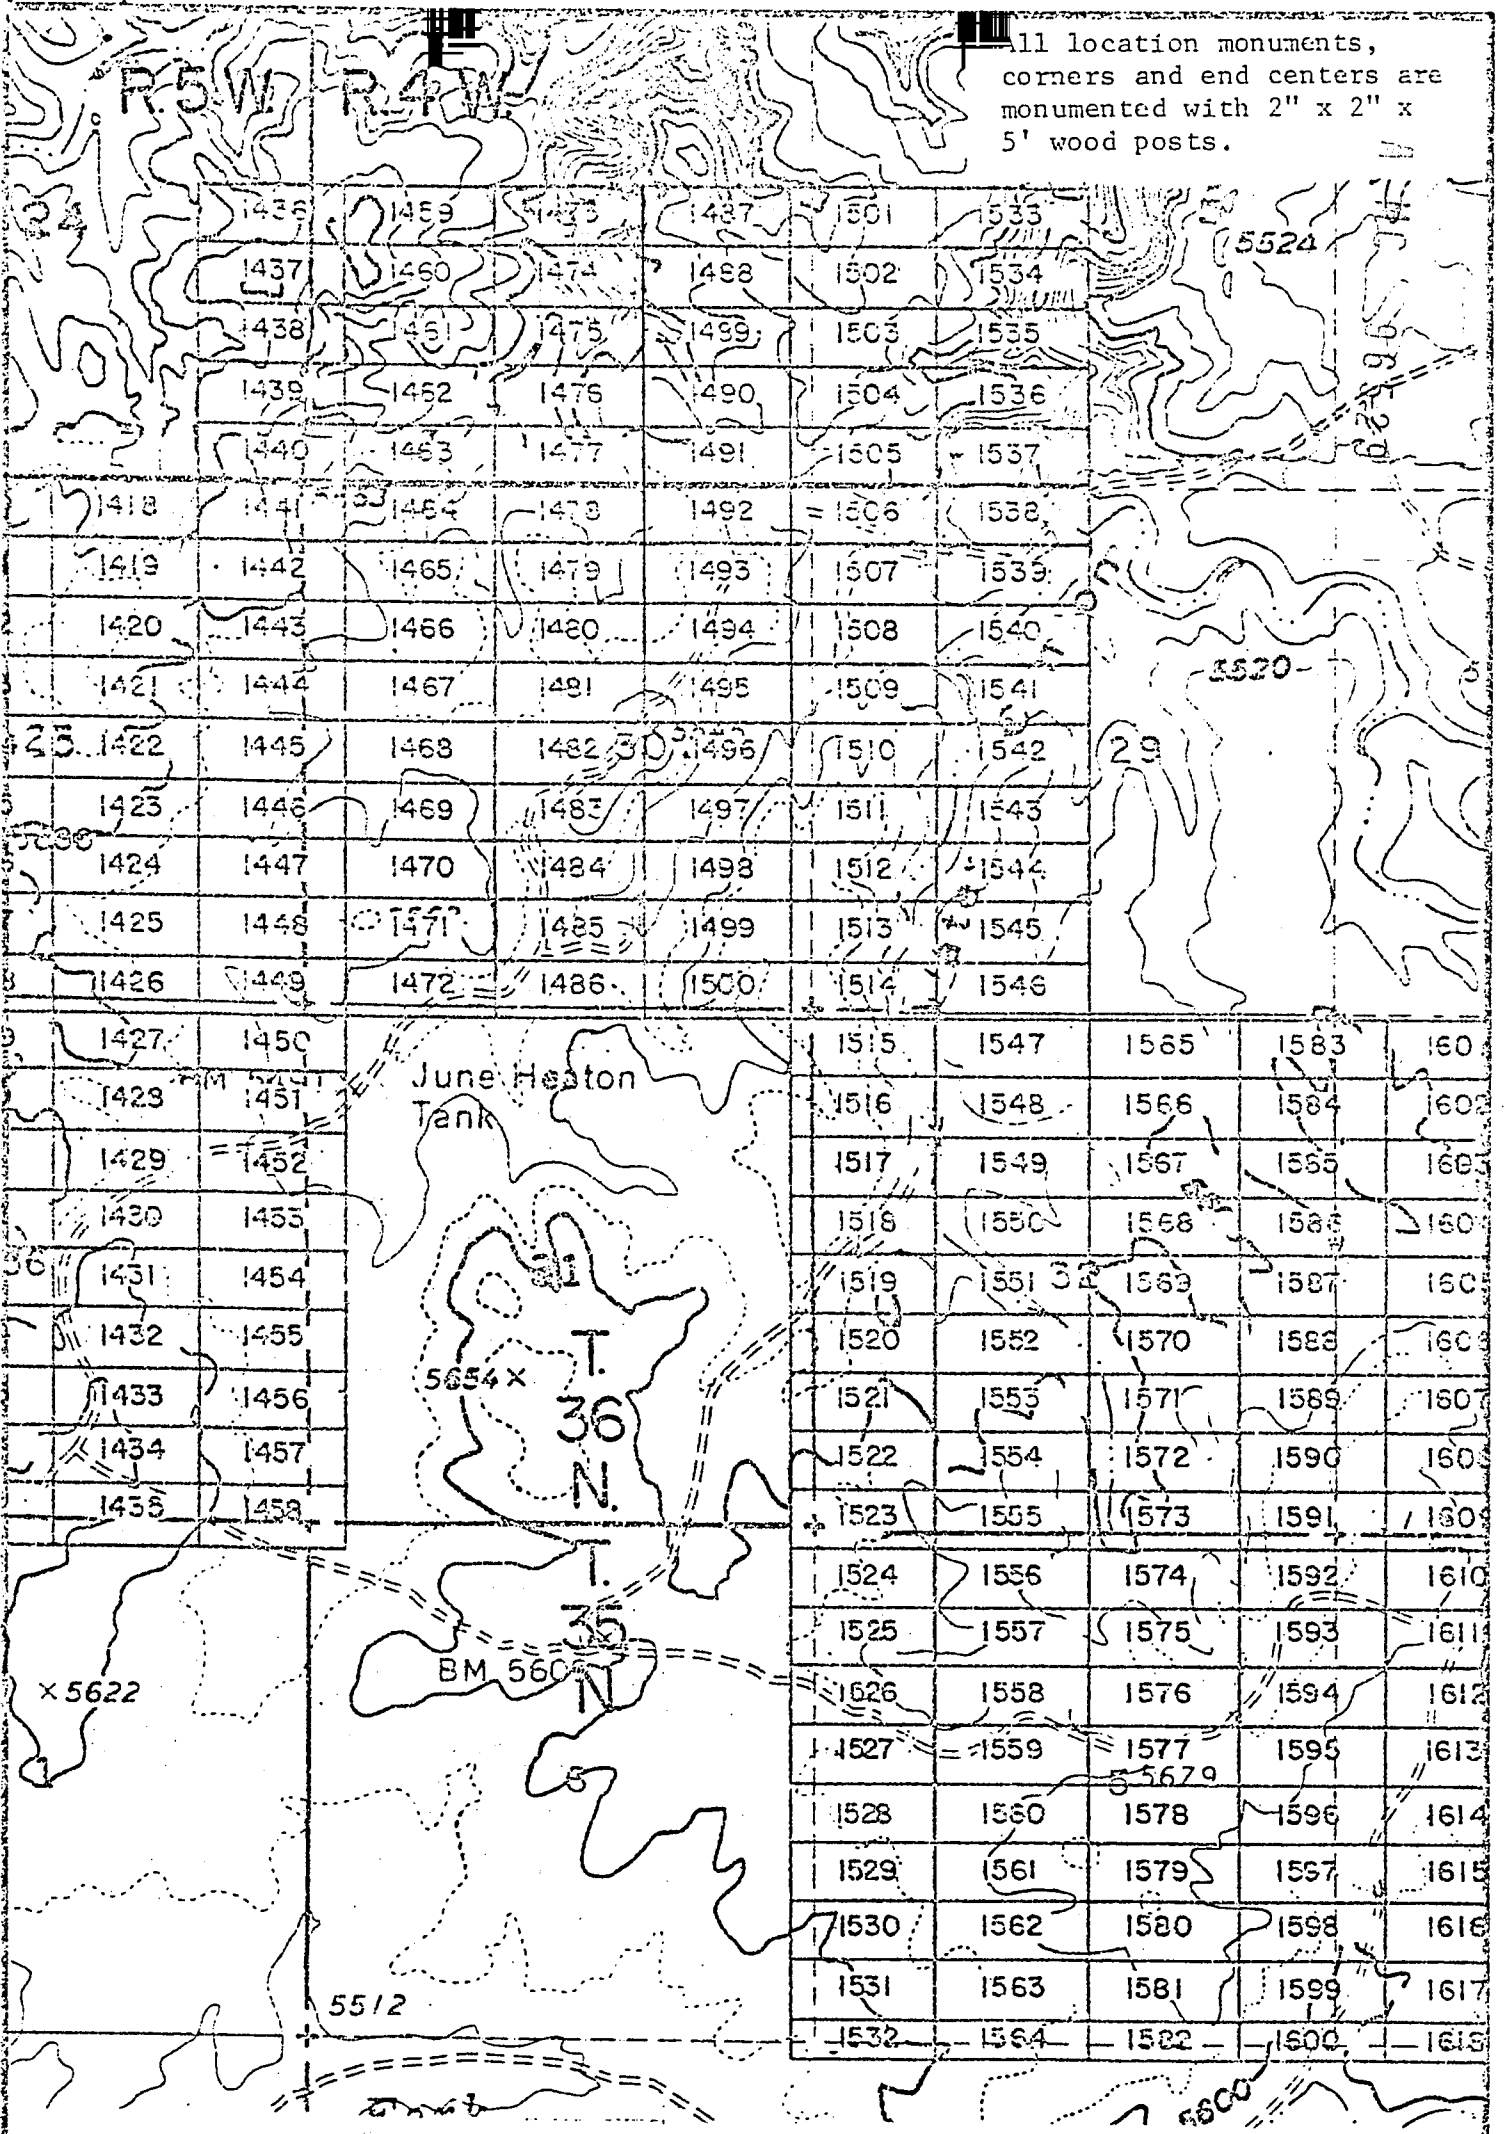 All location monuments,
corners and end centers are
monumented with 2" x 2" x
5' wood posts.
R.5W. R.4W.
24 1436 1459 1473 1487 1501 1533
5524
1437 1460 1474 1488 1502 1534
1438 1461 1475 1499 1503 1535
1439 1462 1476 1490 1504 1536
1440 1463 1477 1491 1505 1537
1418 1441 1464 1478 1492 1506 1538
1419 1442 1465 1479 1493 1507 1539
1420 1443 1466 1480 1494 1508 1540
5520
1421 1444 1467 1481 1495 1509 1541
1422 1445 1468 1482 30 1496 1510 1542 29
1423 1446 1469 1483 1497 1511 1543
1424 1447 1470 1484 1498 1512 1544
1425 1448 1471 1485 1499 1513 1545
1426 1449 1472 1486 1500 1514 1546
1427 1450 1515 1547 1565 1583 160
June Heaton
Tank
1428 1451 1516 1548 1566 1584 1602
1429 1452 1517 1549 1567 1585 1603
1430 1453 1518 1550 1568 1586 160
36 1431 1454 31 1519 1551 32 1569 1587 160
1432 1455 1520 1552 1570 1588 160
T.
36
N.
5654
1433 1456 1521 1553 1571 1589 1607
1434 1457 1522 1554 1572 1590 160
1435 1458 1523 1555 1573 1591 1609
T.
35
N
1524 1556 1574 1592 1610
1525 1557 1575 1593 1611
BM 560
×5622
1526 1558 1576 1594 1612
1527 1559 1577 1595 1613
5 5679
1528 1560 1578 1596 1614
1529 1561 1579 1597 1615
1530 1562 1580 1598 1616
1531 1563 1581 1599 1617
5512
1532 1564 1582 1600 1618
5600